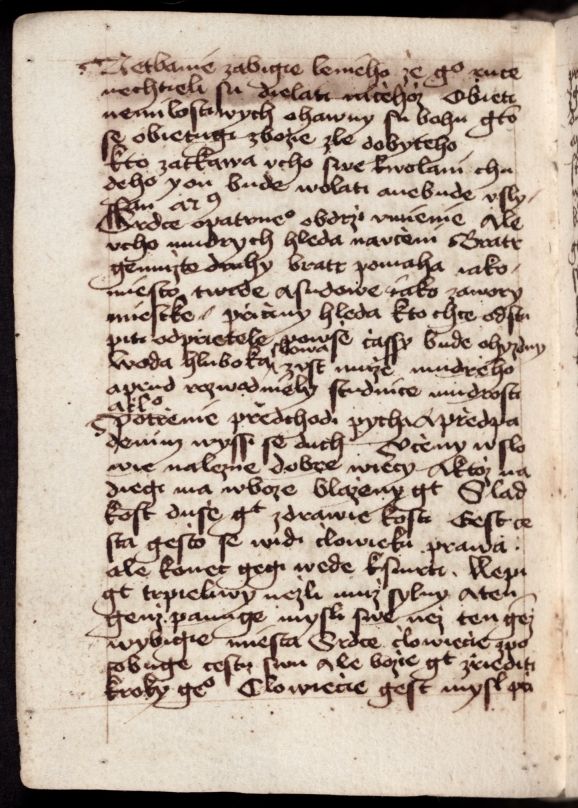 Netbanie zabigie lenieho že g° ruce
nechtieli su dielati nicehoz Obieti
nemilostiwych ohawny su bohu gto
se obietugi zbozie zle dobyteho
kto zatkawa vcho swe kwolani chu
deho yon bude wolati anebude vsly
ssan
Srdce opatrne° obdrzi vmienie Ale
vcho mudrych hleda naučeni Bratr
genmžto druhy bratr pomaha iako
miesto twrde Asudowe iako zawory
miestke Přičiny hleda kto chce odstu
piti odprietele powse čassy bude ohyzdny
Woda hluboka slowa zust muže mudreho
aprud rozwodniely studnice mudrosti
Potřenie předchodi pycha Apředpa
denim wyssi se duch Učeny wslo
wie nalezne dobre wiecy Aktož na
diegi ma wboze blazeny gt Slad
kost duse gt zdrawie kosti Gest ce
sta gešto se widi clowieku prawa
ale konec gegi wede ksmrti Lepi
gt trpieliwy nežli muz sylny Aten
genž panuge mysli swe než ten gež
wybigie miesta Srdce clowiecie spo
sobuge cestu swu Ale bozie gt zriediti
kroky ge° Clowiecie gest mysl při